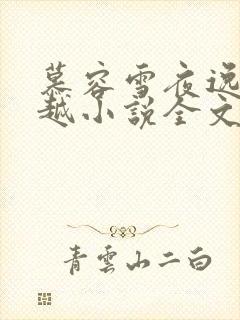 慕容雪夜逸
越小說全文
青雲山二白